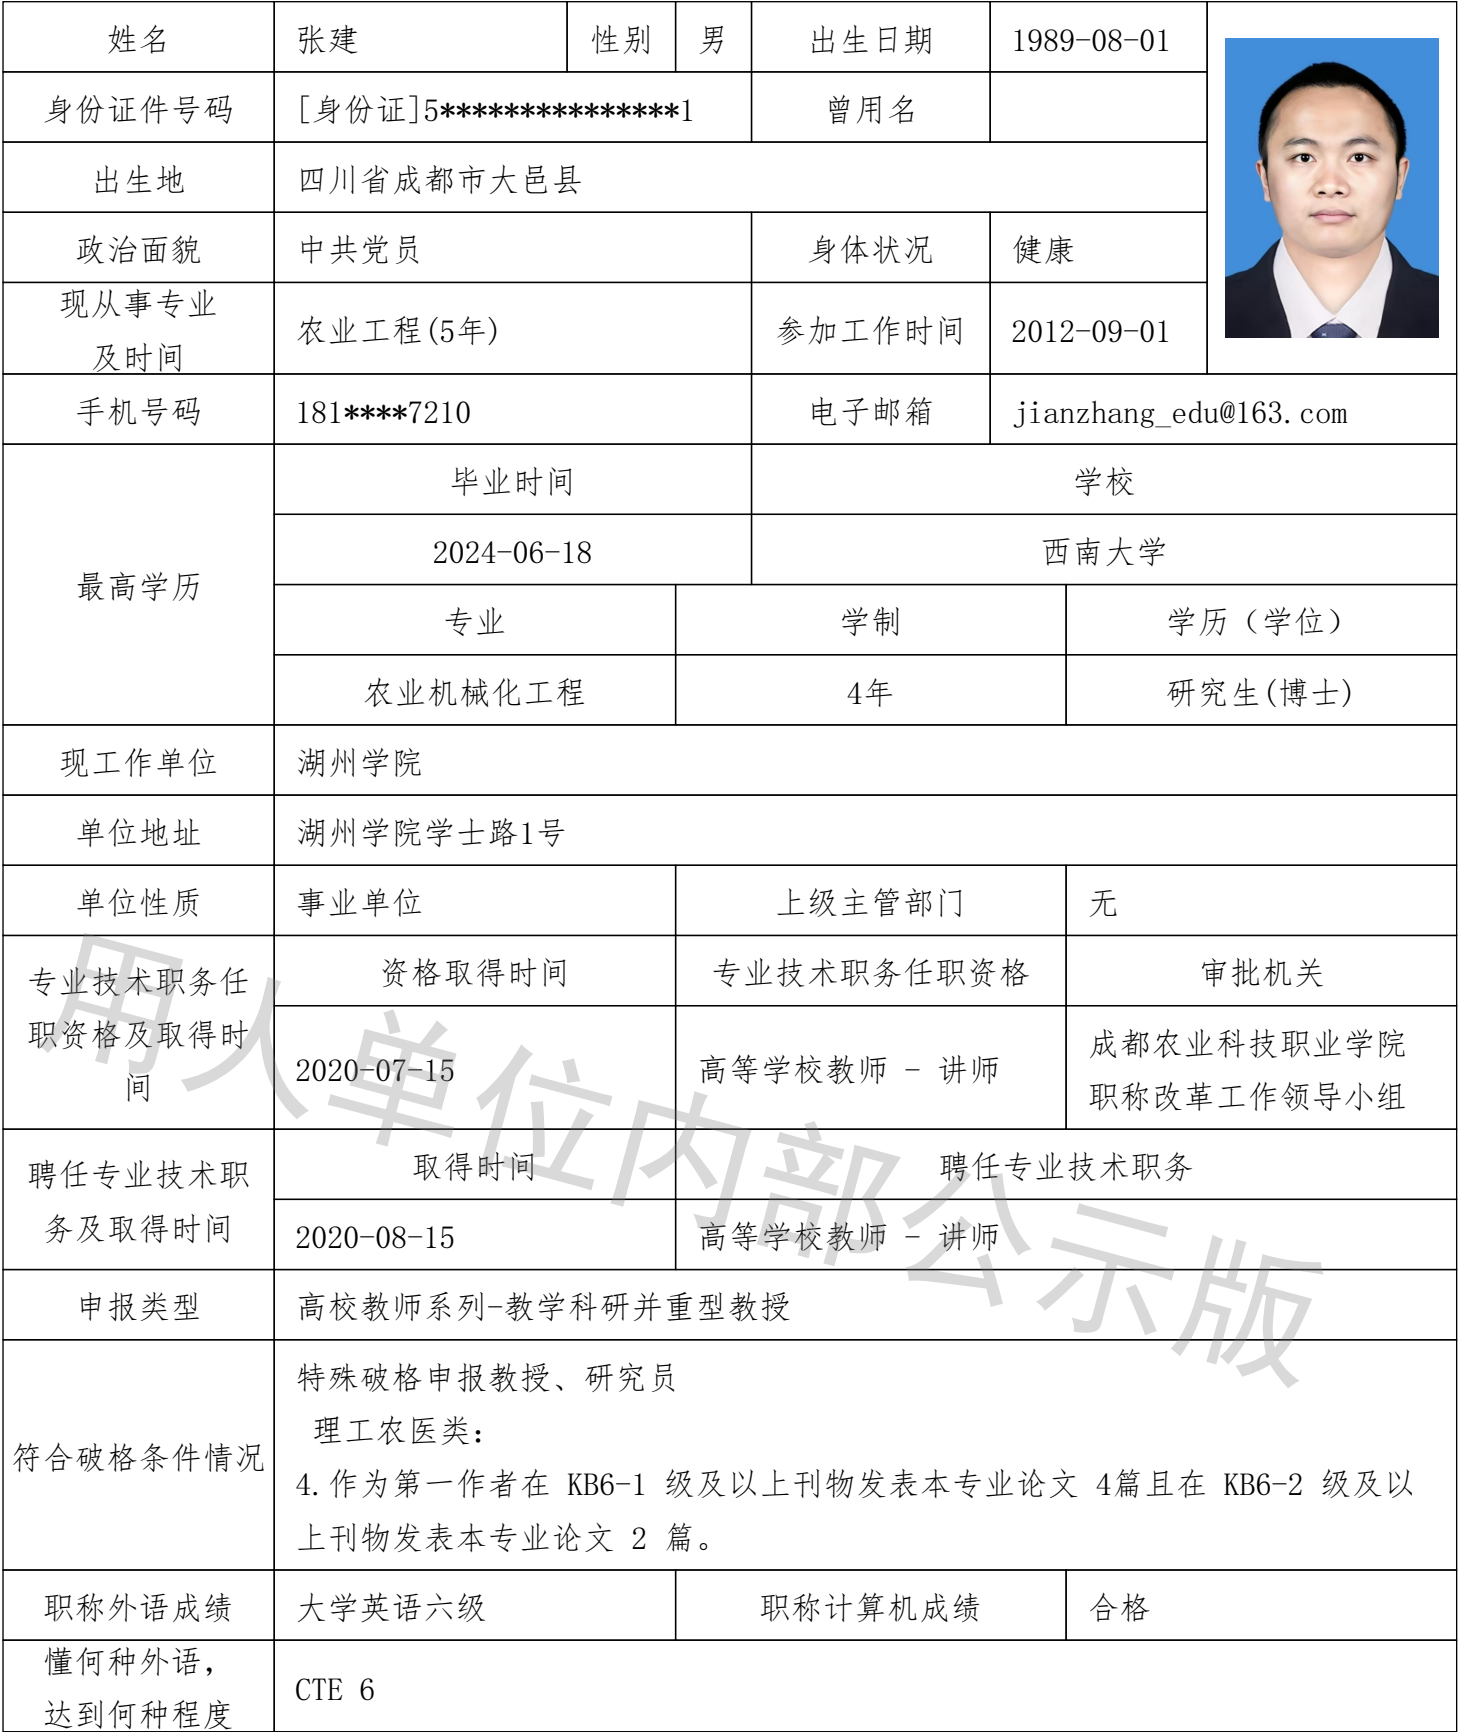 姓名 张建 性别 男 出生日期 1989-08-01
身份证件号码 [身份证]5***************1 曾用名
出生地 四川省成都市大邑县
政治面貌 中共党员 身体状况 健康
现从事专业
及时间 农业工程(5年) 参加工作时间 2012-09-01
手机号码 181****7210 电子邮箱 jianzhang_edu@163.com
最高学历
毕业时间 学校
2024-06-18 西南大学
专业 学制 学历（学位）
农业机械化工程 4年 研究生(博士)
现工作单位 湖州学院
单位地址 湖州学院学士路1号
单位性质 事业单位 上级主管部门 无
专业技术职务任
职资格及取得时
间
资格取得时间 专业技术职务任职资格 审批机关
2020-07-15 高等学校教师 - 讲师 成都农业科技职业学院
职称改革工作领导小组
聘任专业技术职
务及取得时间
取得时间 聘任专业技术职务
2020-08-15 高等学校教师 - 讲师
申报类型 高校教师系列-教学科研并重型教授
符合破格条件情况
特殊破格申报教授、研究员
理工农医类：
4.作为第一作者在 KB6-1 级及以上刊物发表本专业论文 4篇且在 KB6-2 级及以
上刊物发表本专业论文 2 篇。
职称外语成绩 大学英语六级 职称计算机成绩 合格
懂何种外语，
达到何种程度 CTE 6
用人单位内部公示版